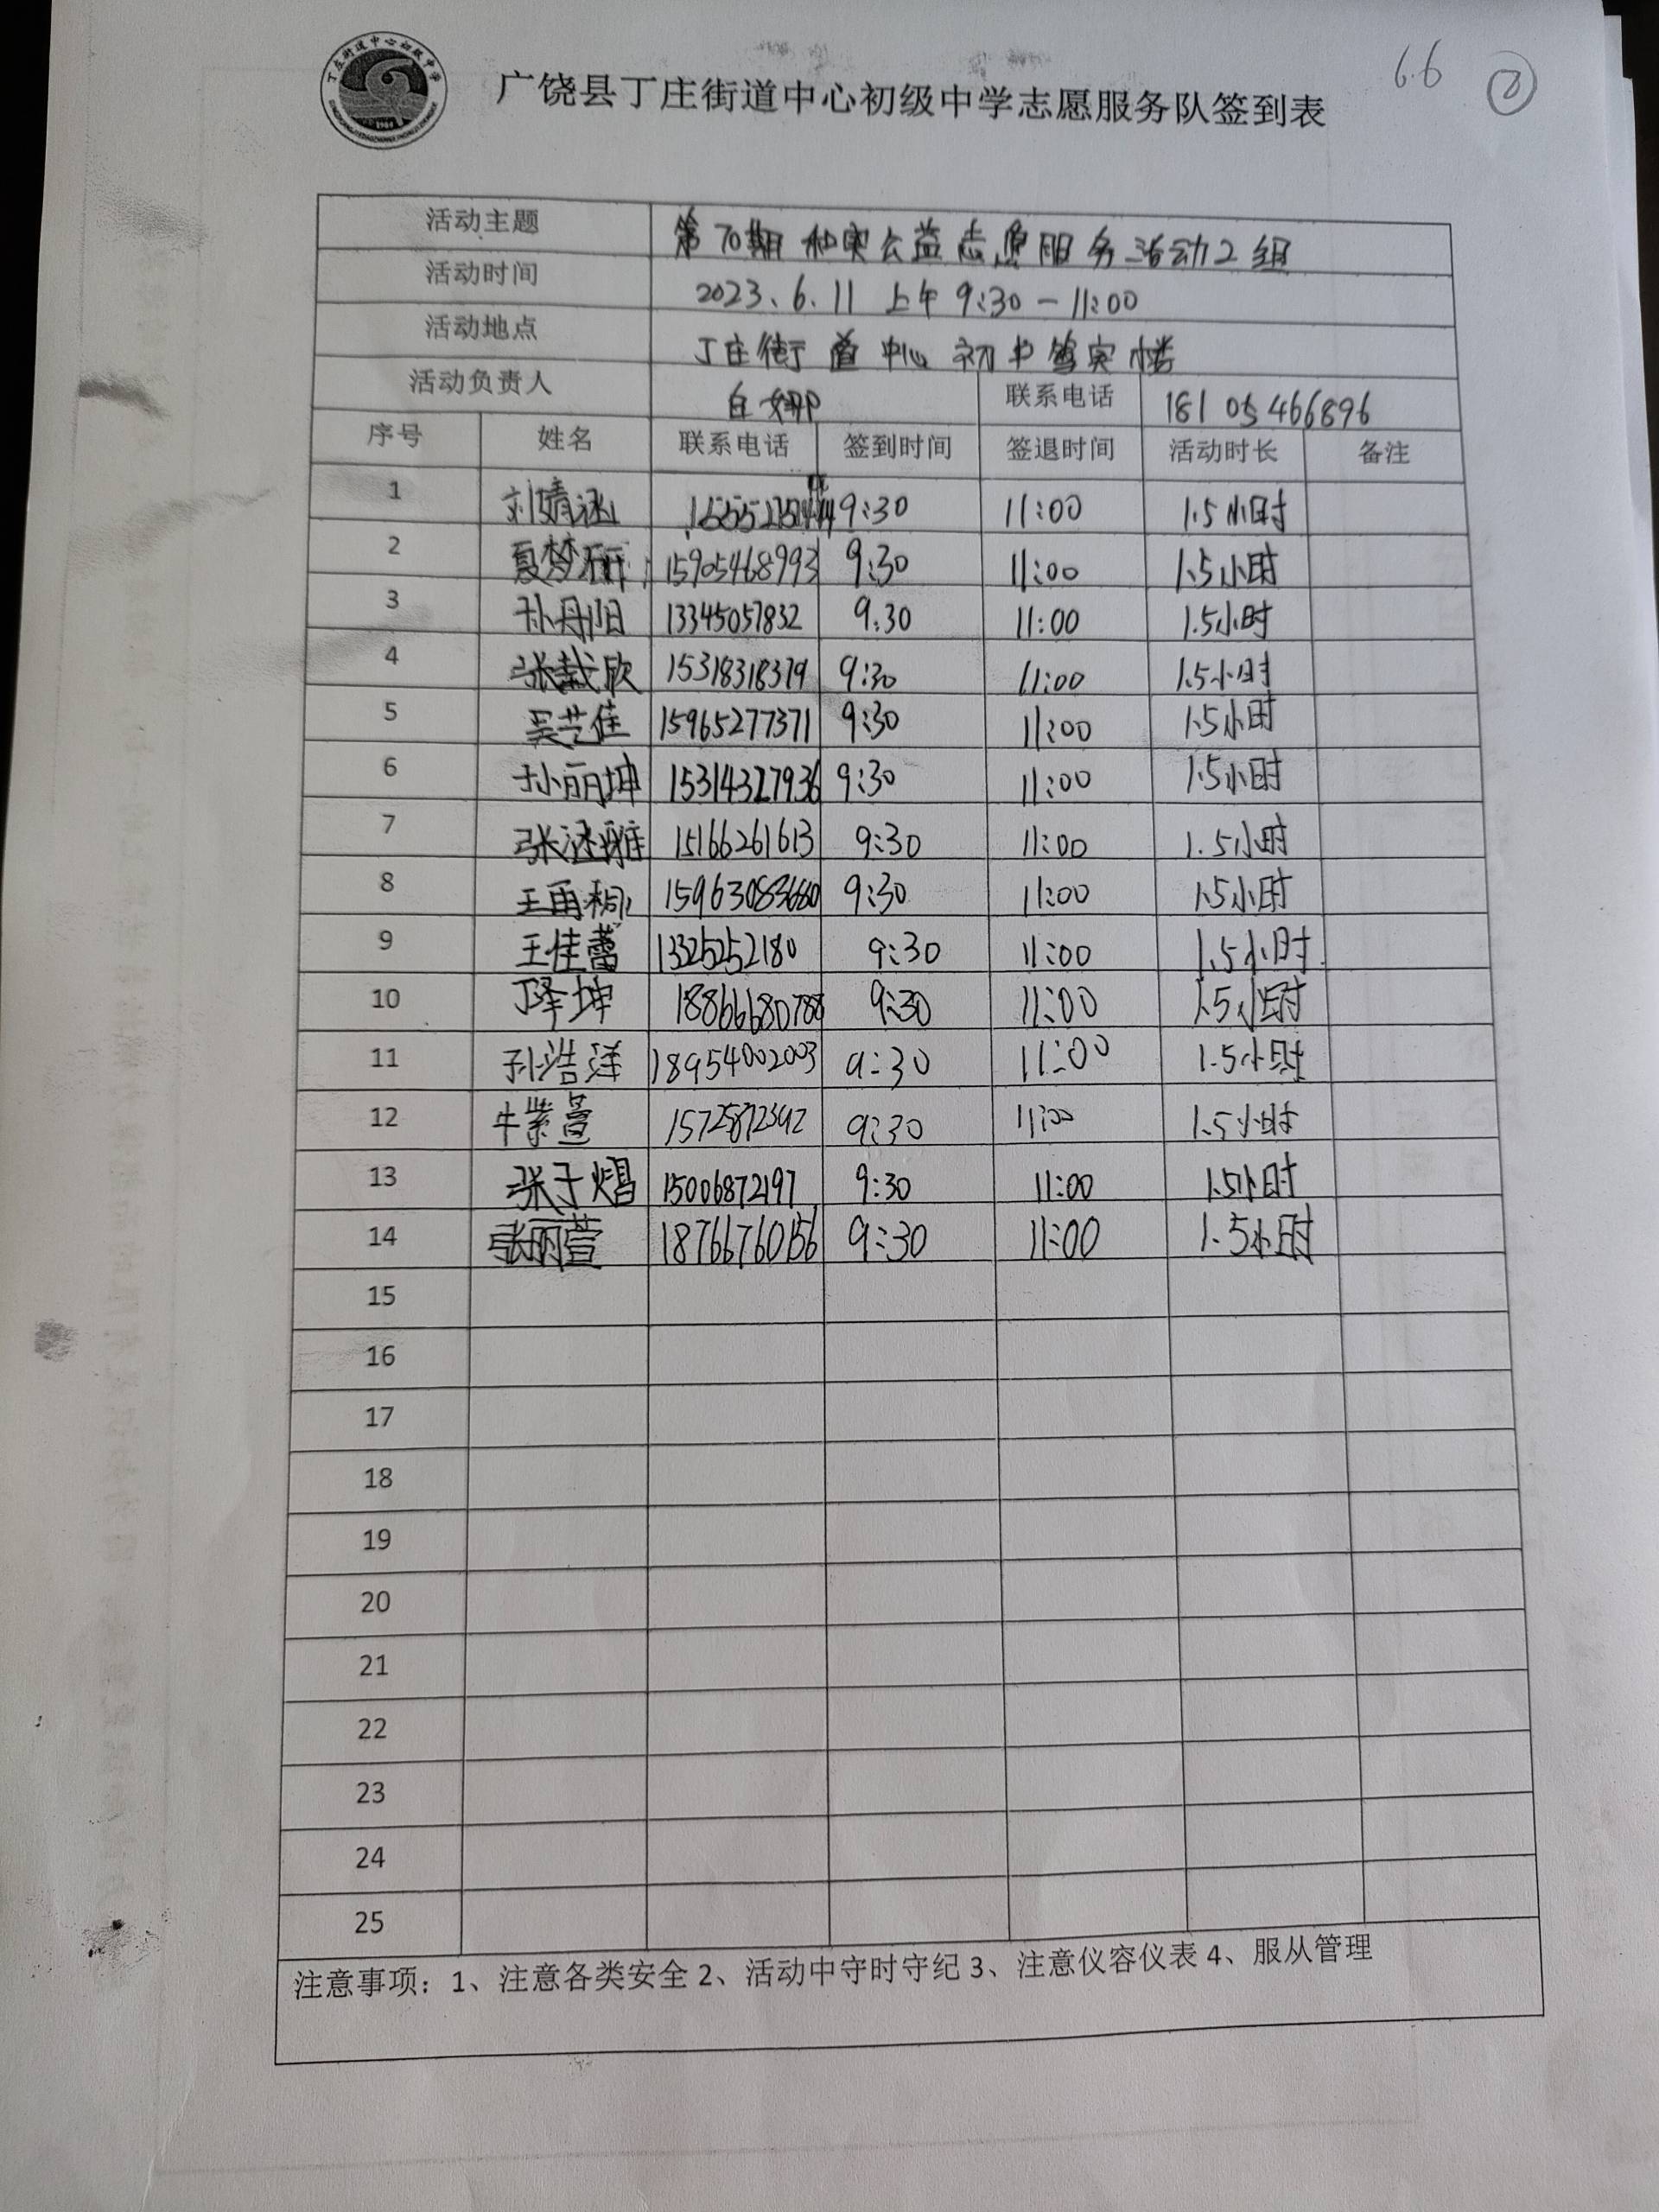 丁庄街道中心初级中学
1984
广饶县丁庄街道中心初级中学志愿服务队签到表
6.6 ②
活动主题 第70期和实公益志愿服务活动2组
活动时间 2023.6.11 上午 9:30-11:00
活动地点 丁庄街道中心初中笃实楼
活动负责人 白娜 联系电话 18105466896
序号 姓名 联系电话 签到时间 签退时间 活动时长 备注
1 刘婧涵 9:30 11:00 1.5小时
2 夏梦研 15905468993 9:30 11:00 1.5小时
3 孙丹旧 13345057832 9:30 11:00 1.5小时
4 张懿欣 15318318379 9:30 11:00 1.5小时
5 吴芝佳 15965277371 9:30 11:00 1.5小时
6 孙丽坤 15314327936 9:30 11:00 1.5小时
7 张涵雅 15166261613 9:30 11:00 1.5小时
8 王雨桐 9:30 11:00 1.5小时
9 王佳蕾 1325252180 9:30 11:00 1.5小时
10 丁泽坤 18866680788 9:30 11:00 1.5小时
11 孙浩洋 18954002003 9:30 11:00 1.5小时
12 牛紫萱 9:30 11:00 1.5小时
13 张于熠 15006872197 9:30 11:00 1.5小时
14 张丽萱 18766760156 9:30 11:00 1.5小时
15
16
17
18
19
20
21
22
23
24
25
注意事项：1、注意各类安全 2、活动中守时守纪 3、注意仪容仪表 4、服从管理